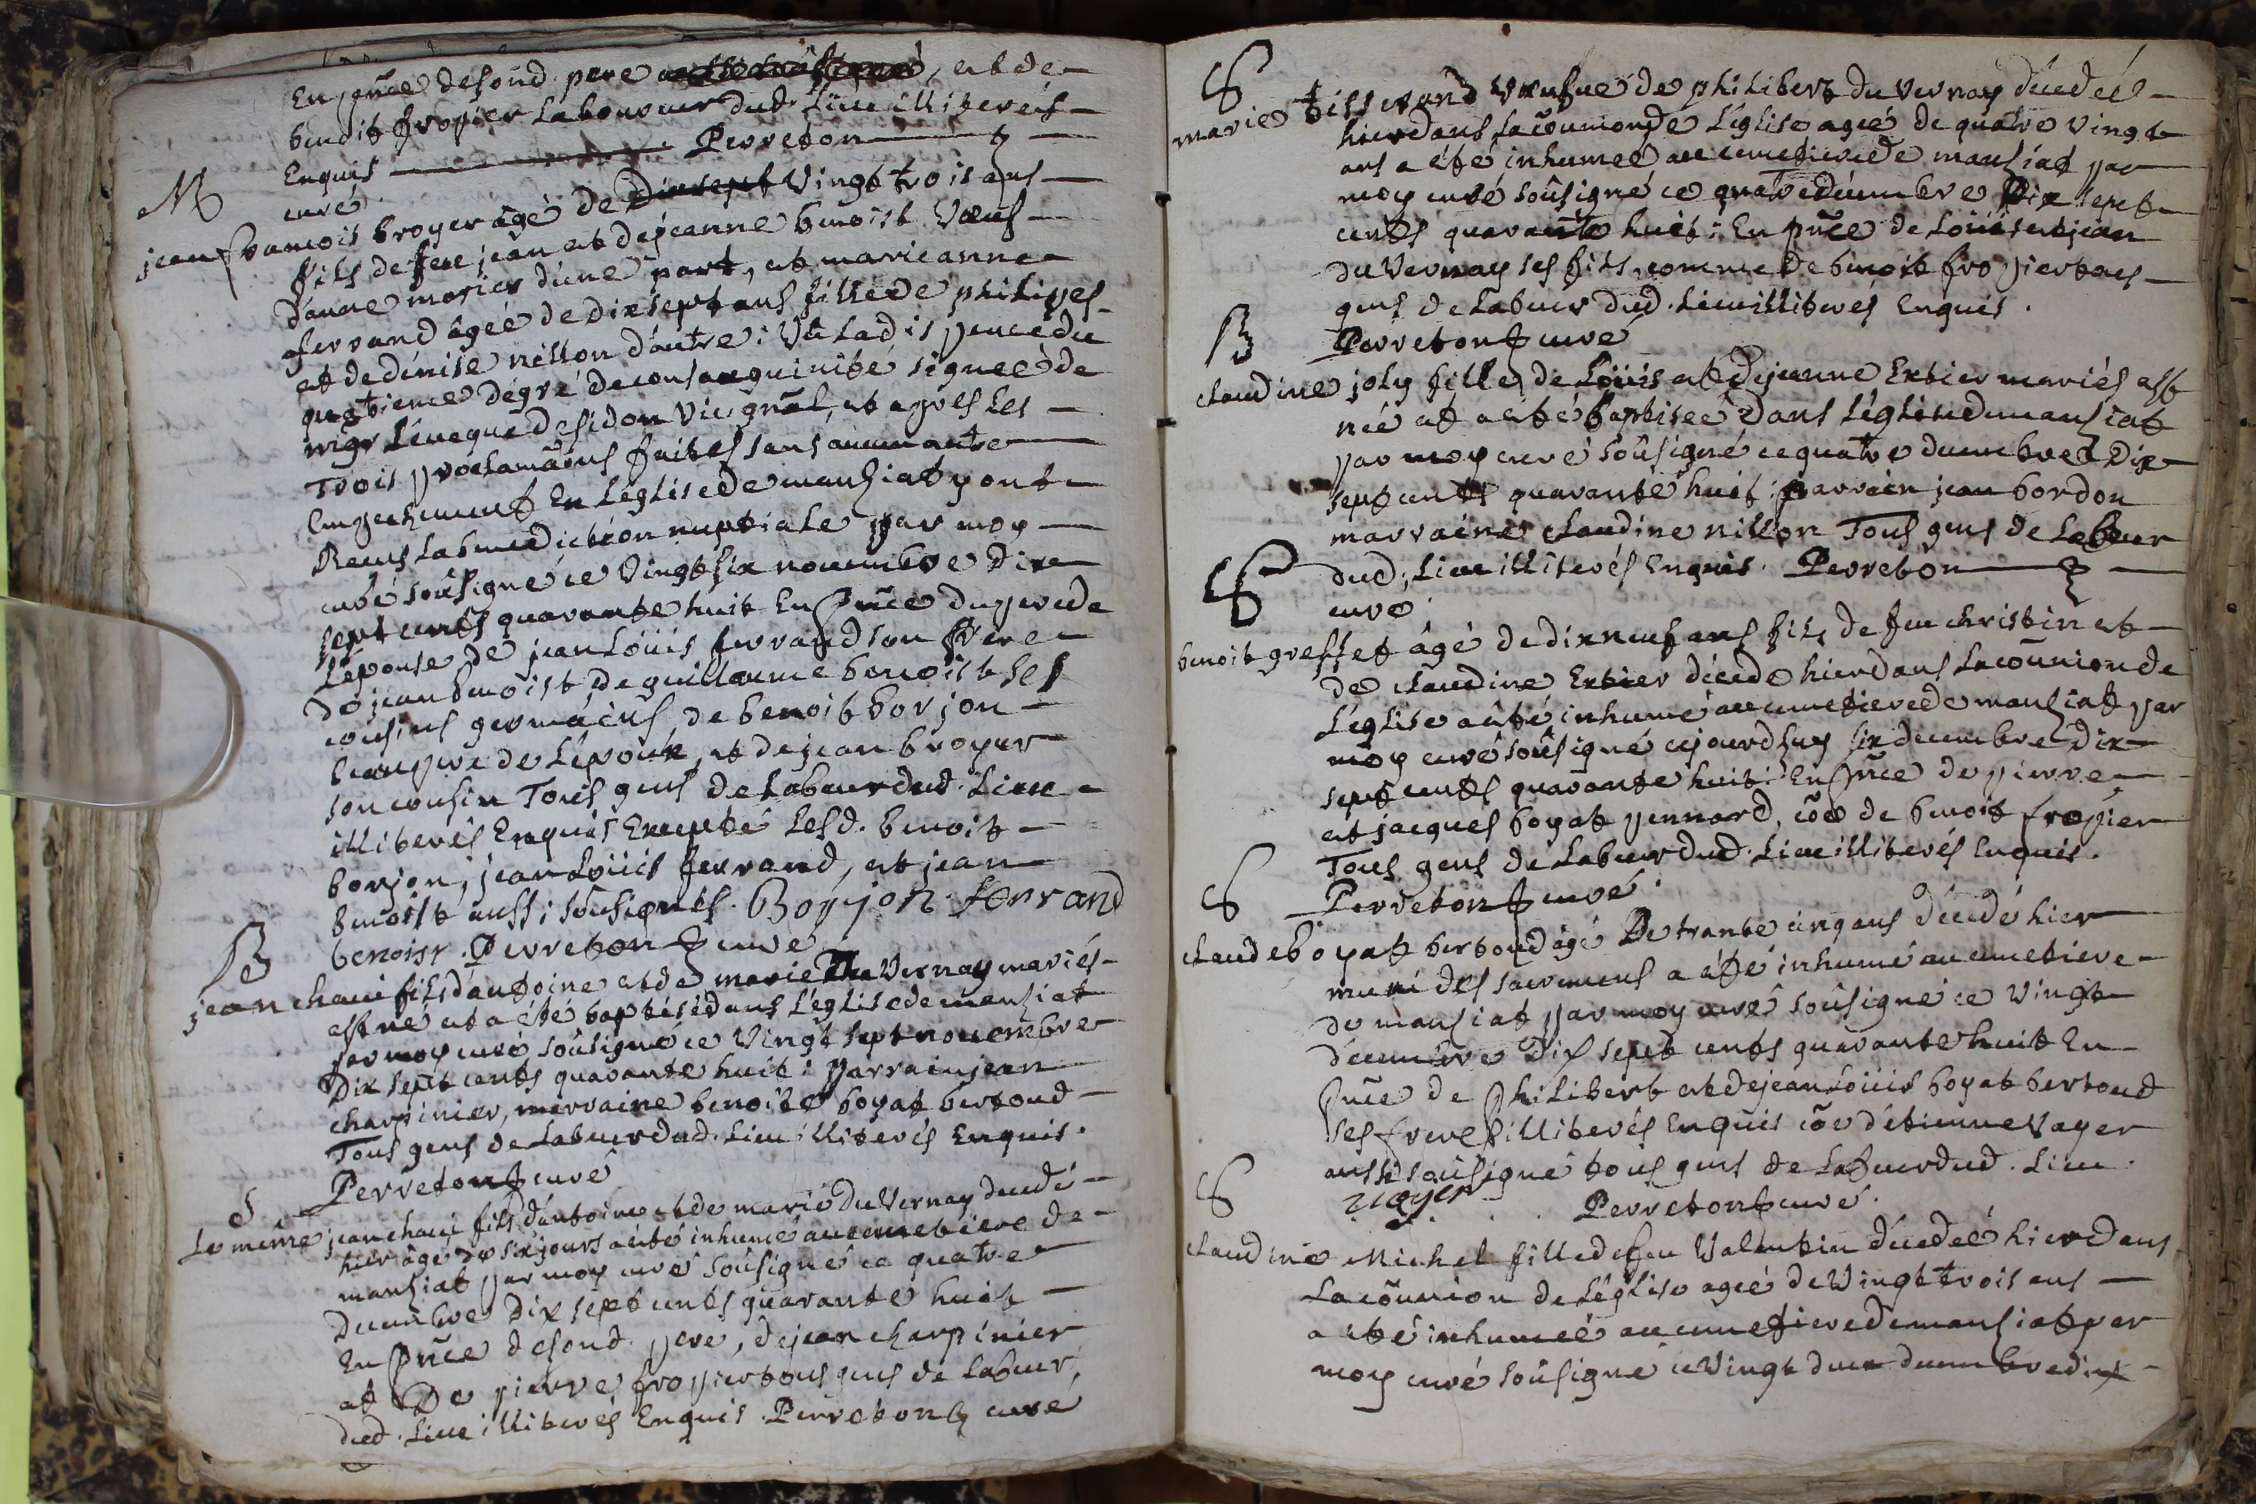 En pñce de sond. pere et de
benoit fropier Laboureur dud. Lieu illiterés
Enquis Perreton
curé.
M
jean francois broyer âgé de dixsept Vingt trois ans
fils de feu jean et de jeanne benoist Vœuf
danne morier dune part, et marie anne
ferrand âgée de dix sept ans fille de philipes
et de dénise nillon dautre: Vu La dispence du
quatrieme dégré de consanguinité signeé de
mgr Léveque de sidon Vic gñal, et apres Les
Trois proclamãons faites sans aucun autre
Empechement En Léglise de manziat y ont
Receus La benediction nuptiale par moy
curé soûsigné ce Vingt six nouembre Dix
sept cents quarante huit En pñce du pere de
Lépouse de jean Loüis ferrand son frere
de jean benoist De guillaume benoist ses
cousins germains de benoit borjon
beaupere de Lépoux, et de jean broyer
son cousin Tous gens de Labeur dud. Lieu
illiterés Enquis Excepté Lesd. benoit
borjon, jean Loüis ferrand, et jean
benoist aussi soûsignés. Borjon ferrand
benoist. Perreton curé
B
jean chani fils dantoine et de marie Du Vernay mariés
est né et a été baptisé dans Léglise de manziat
par moy curé soûsigné ce Vingt sept nouembre
Dix sept cents quarante huit: parrain jean
charpinier, marraine benoite boyat bertoud
Tous gens de Labeur dud. Lieu illiterés Enquis.
Perreton curé
S
Le même jean chani fils dantoine et de marie Du Vernay décedé
hier âgé de six jours a été inhumé au cimetiere de
manziat par moy curé soûsigné ce quatre
Decembre Dix sept cents quarante huit
En pñce de sond. pere, de jean charpinier
et De pierre fropier tous gens de Labeur,
dud. Lieu illiterés Enquis. Perreton curé
S
marie tisserand Veufue de philibert du Vernay décedeé
hier dans La coñmon de Léglise ageé de quatre vingt
ans a été inhumeé au cimetiere de manziat par
moy curé soûsigné ce quatre décembre Dix sept
cents quarante huit: En pñce de Loüis et jean
du Vernay ses fils, comme de benoit fropier tous
gens de Labeur dud. Lieu illiterés Enquis.
Perreton curé
B
claudine joly fille de Loüis et de jeanne Extier mariés est
neé et a été baptiseé Dans Léglise de manziat
par moy curé soûsigné ce quatre decembre Dix
sept cents quarante huit: parrain jean bordon
marraine claudine nillon Tous gens de Labeur
dud. Lieu illiterés Enquis. Perreton
curé.
S
benoit greffet âgé de dix neuf ans fils de feu christin et
de claudine Extier décedé hier dans La coñunion de
Léglise a été inhumé au cimetiere de manziat par
moy curé soûsigné cejourdhuy six decembre dix
sept cents quarante huit: En pñce de pierre
et jacques boyat pennard, cõe de benoit fropier
Tous gens de Labeur dud. Lieu illiterés Enquis.
Perreton curé.
S
claude boyat bertoud âgé De trante cinq ans décedé hier
muni des sacremens a été inhumé au cimetiere
de manziat par moy curé soûsigné ce Vingt
décembre Dix sept cents quarante huit En
pñce de philibert et de jean Loüis boyat bertoud
ses freres illiterés Enquis cõe détienne Vayer
aussi soûsigné tous gens de Labeur dud. Lieu.
Perreton curé.
S
claudine Michel fille de feu Valentin décedeé hier dans
La coñunion de Léglise ageé de Vingt trois ans
a été inhumeé au cimetiere de manziat par
moy curé soûsigné ce Vingt deux decembre dix